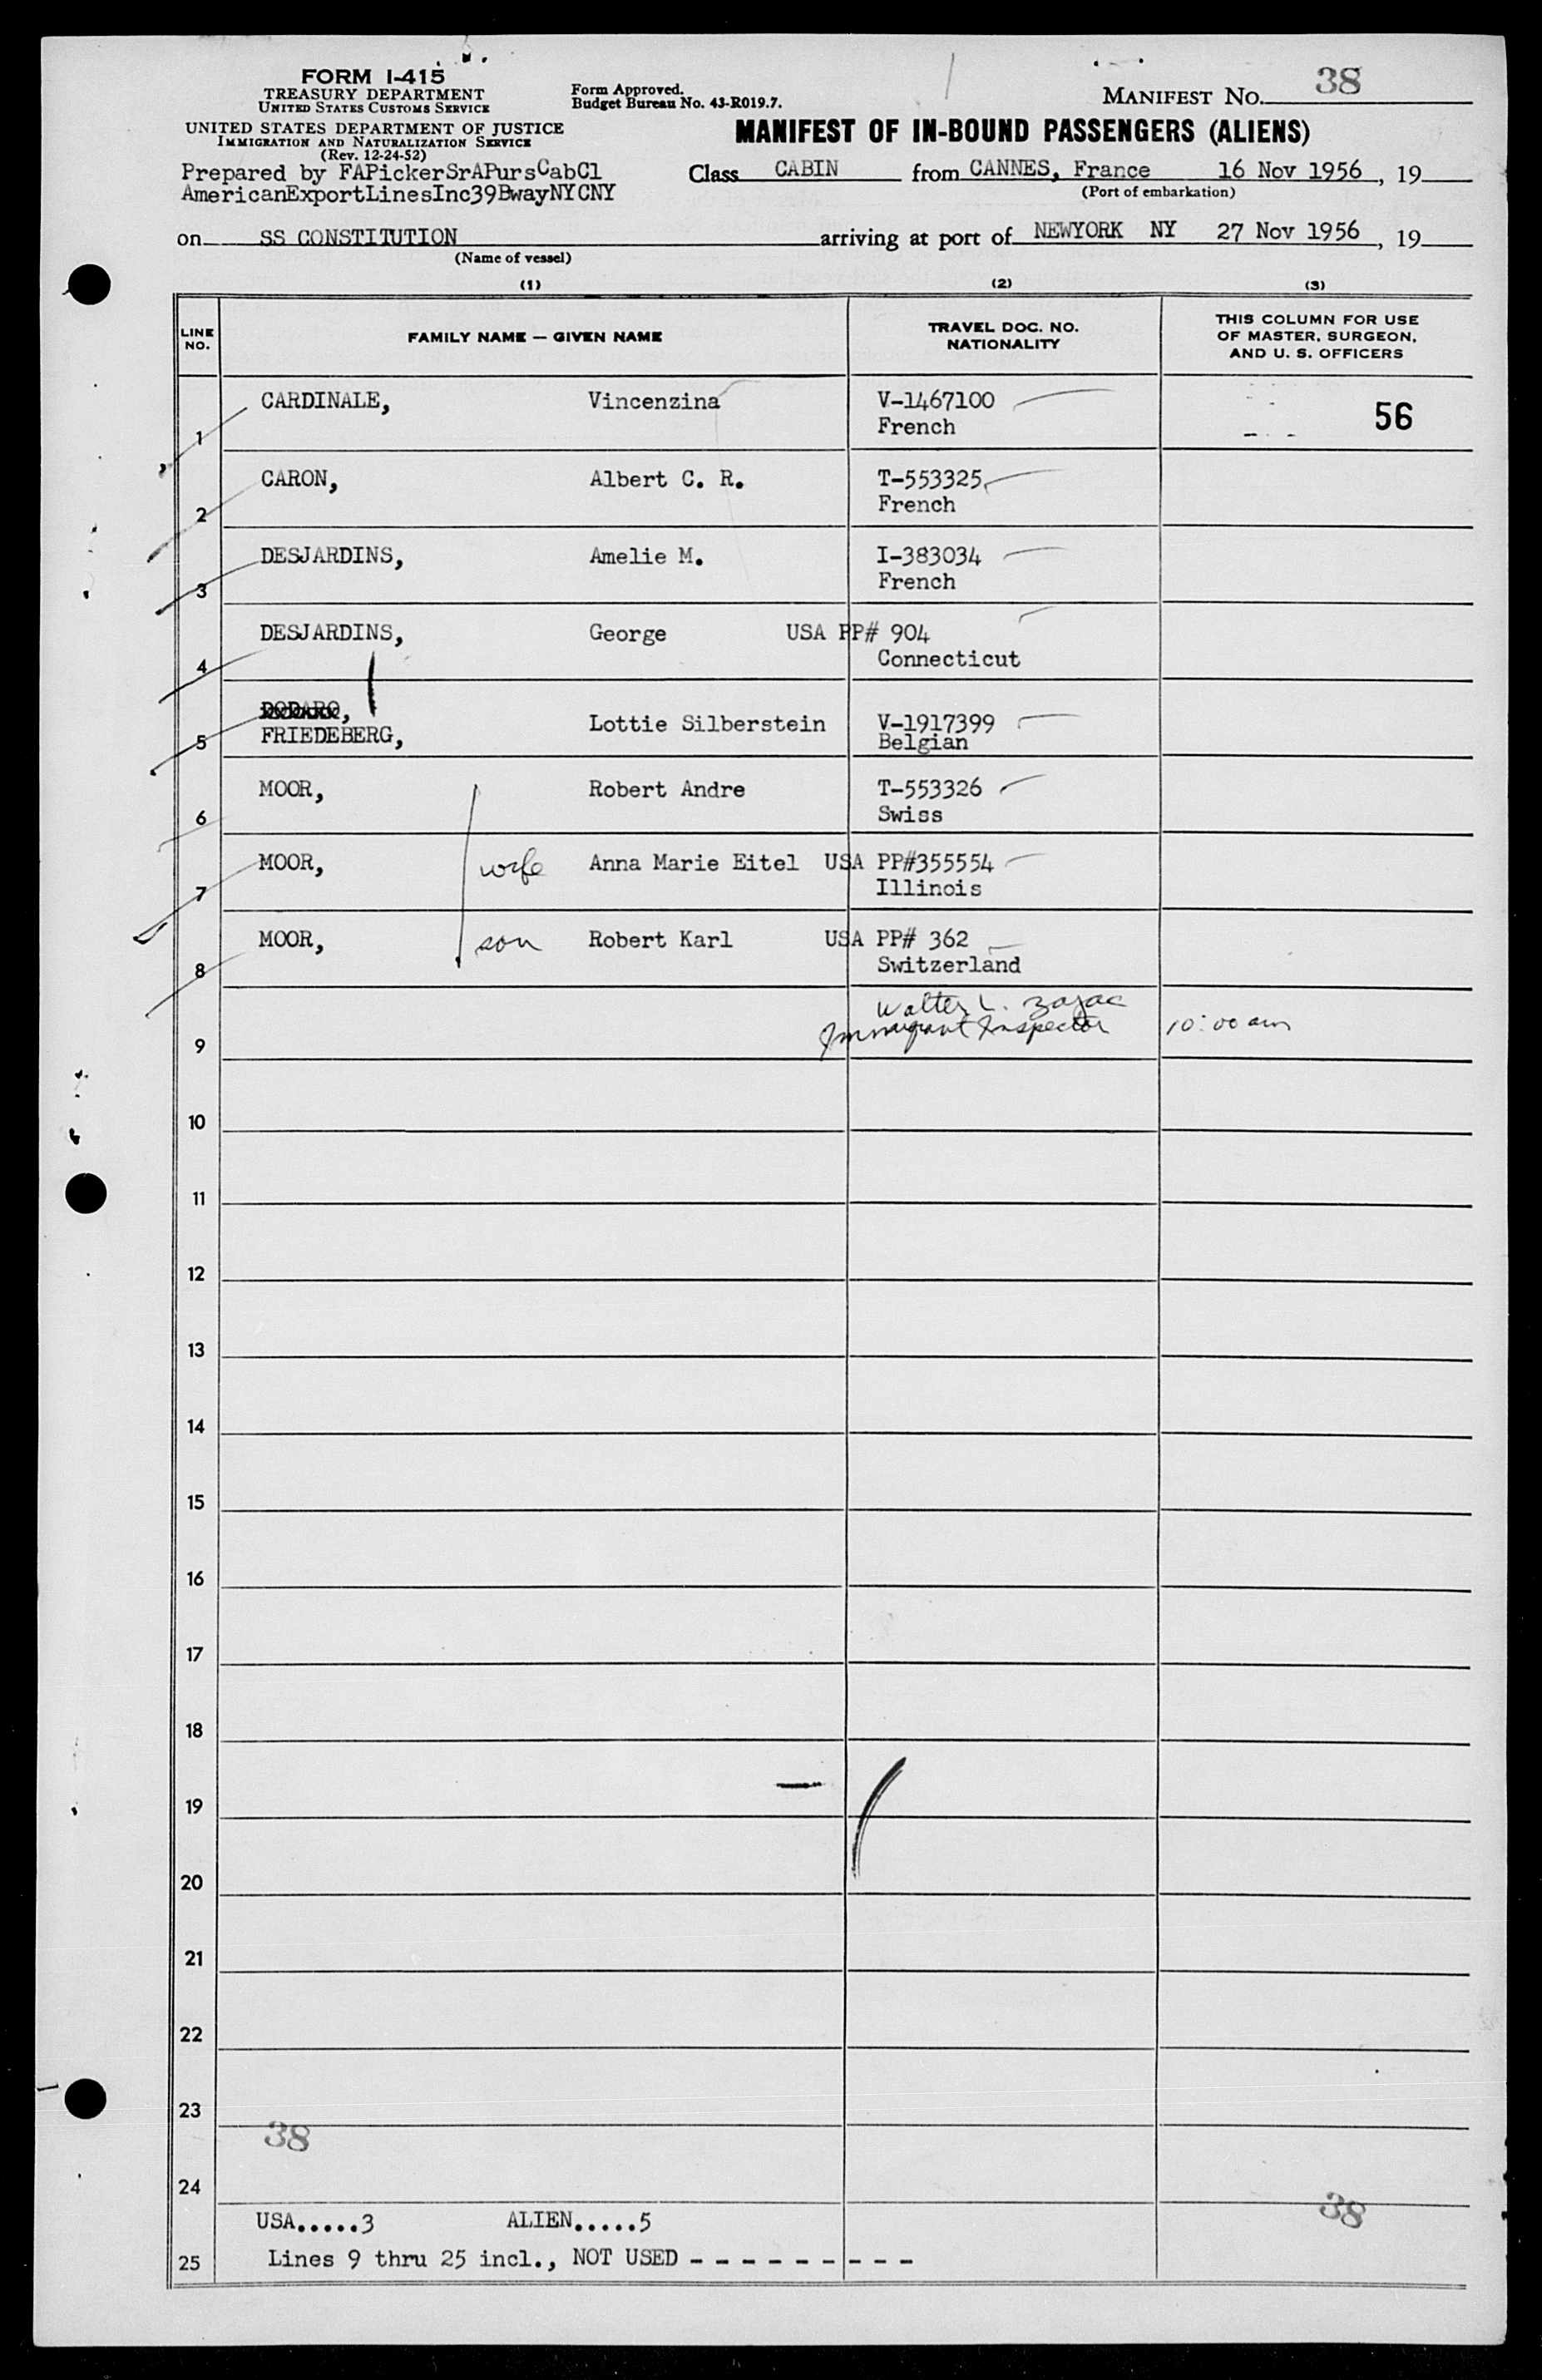 FORM I-415
TREASURY DEPARTMENT
UNITED STATES CUSTOMS SERVICE
UNITED STATES DEPARTMENT OF JUSTICE
IMMIGRATION AND NATURALIZATION SERVICE
(Rev. 12-24-52)
Form Approved.
Budget Bureau No. 43-R019.7.
MANIFEST NO. 38
MANIFEST OF IN-BOUND PASSENGERS (ALIENS)
Prepared by FAPickerSrAPursCabCl
AmericanExportLinesInc39BwayNYCNY
Class CABIN from CANNES, France 16 Nov 1956, 19
(Port of embarkation)
on SS CONSTITUTION arriving at port of NEWYORK NY 27 Nov 1956, 19
(Name of vessel)
(1) (2) (3)
LINE NO. FAMILY NAME — GIVEN NAME TRAVEL DOC. NO. NATIONALITY THIS COLUMN FOR USE OF MASTER, SURGEON, AND U. S. OFFICERS
1 CARDINALE, Vincenzina V-1467100 56
French
2 CARON, Albert C. R. T-553325
French
3 DESJARDINS, Amelie M. I-383034
French
4 DESJARDINS, George USA PP# 904
Connecticut
DODARO,
5 FRIEDEBERG, Lottie Silberstein V-1917399
Belgian
6 MOOR, Robert Andre T-553326
Swiss
7 MOOR, wife Anna Marie Eitel USA PP#355554
Illinois
8 MOOR, son Robert Karl USA PP# 362
Switzerland
Walter L. Zajac
9 Immigrant Inspector 10:00 am
10
11
12
13
14
15
16
17
18
19
20
21
22
23
38
24
38
USA.....3 ALIEN.....5
25 Lines 9 thru 25 incl., NOT USED - - - - - - - - - -